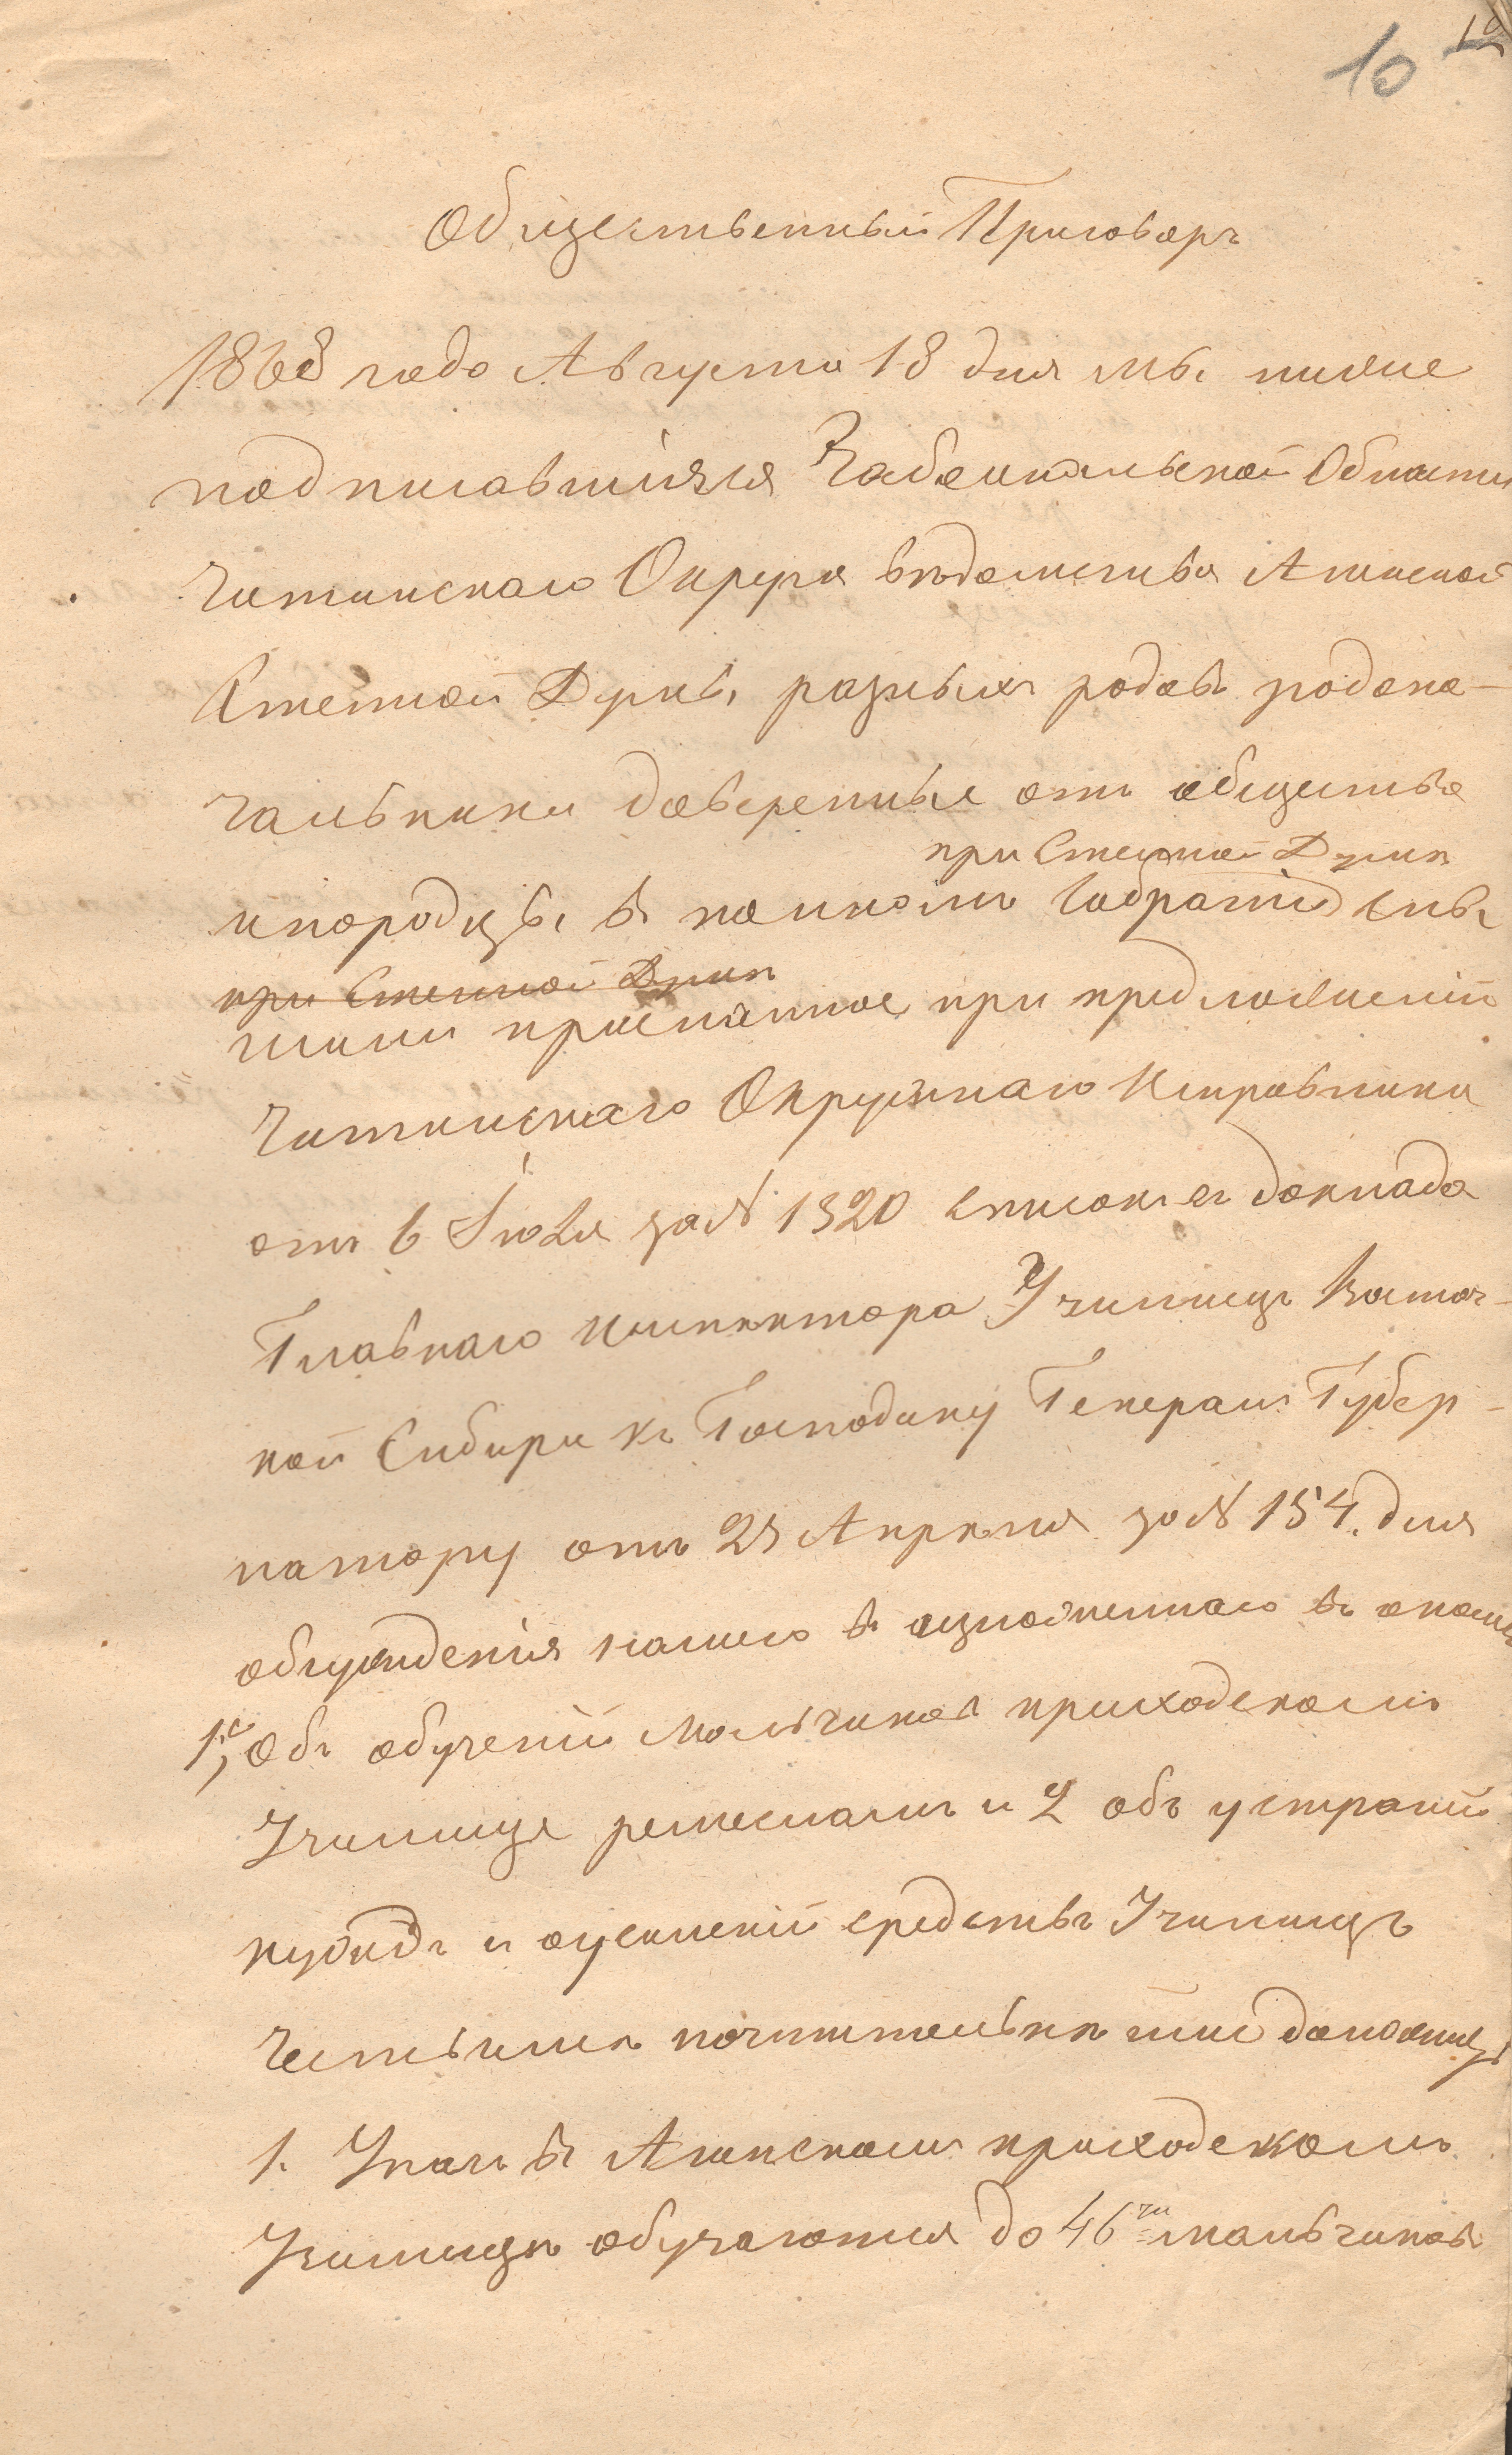 10
Общественный Приговоръ
1868 года Августа 18 дня мы ниже
подписавшіяся Забайкальской Области
Читинскаго Округа вѣдомства Агинской
Степной Думы, разныхъ родовъ родона-
чальники доверенные отъ общества
при Степной Думѣ
инородцы, въ полномъ собраніи слы
при Степной Думѣ
шали присланное при предложеніи
Читинскаго Окружнаго Исправника
отъ 6 Іюля за № 1320 списокъ съ доклада
Главнаго инспектора Училищъ Восточ-
ной Сибири къ Господину Генералъ Губер-
натору отъ 25 Апрѣля за № 154. для
обсужденія нашего въ
1е, Объ обученіи мальчиковъ приходскомъ
Училище ремесламъ и 2 объ устраніи
нуждъ и оусиленіи средствъ Училищъ
Честь имѣ почтительнѣ
1. У насъ въ Агинскомъ приходскомъ
Училищѣ обучаются до 46ти мальчиковъ